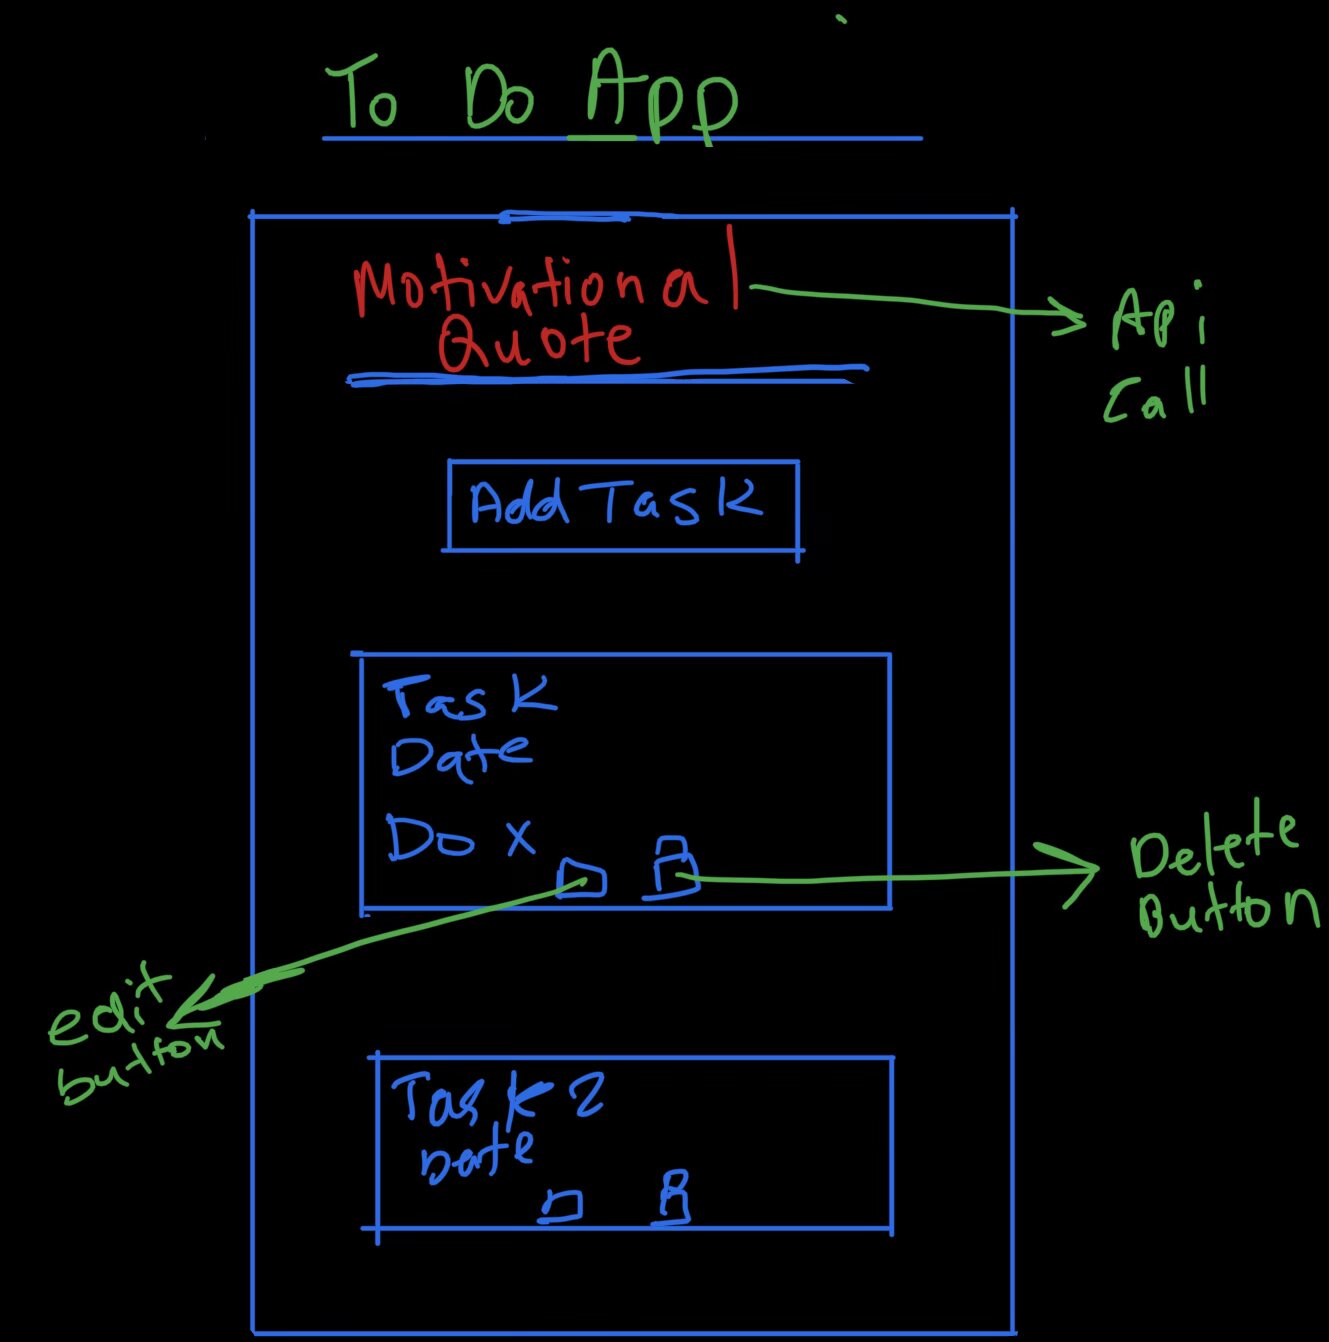 To Do App
Motivational
Quote
Api
Call
Add Task
Task
Date
Do X
Delete
Button
edit
button
Task 2
Date